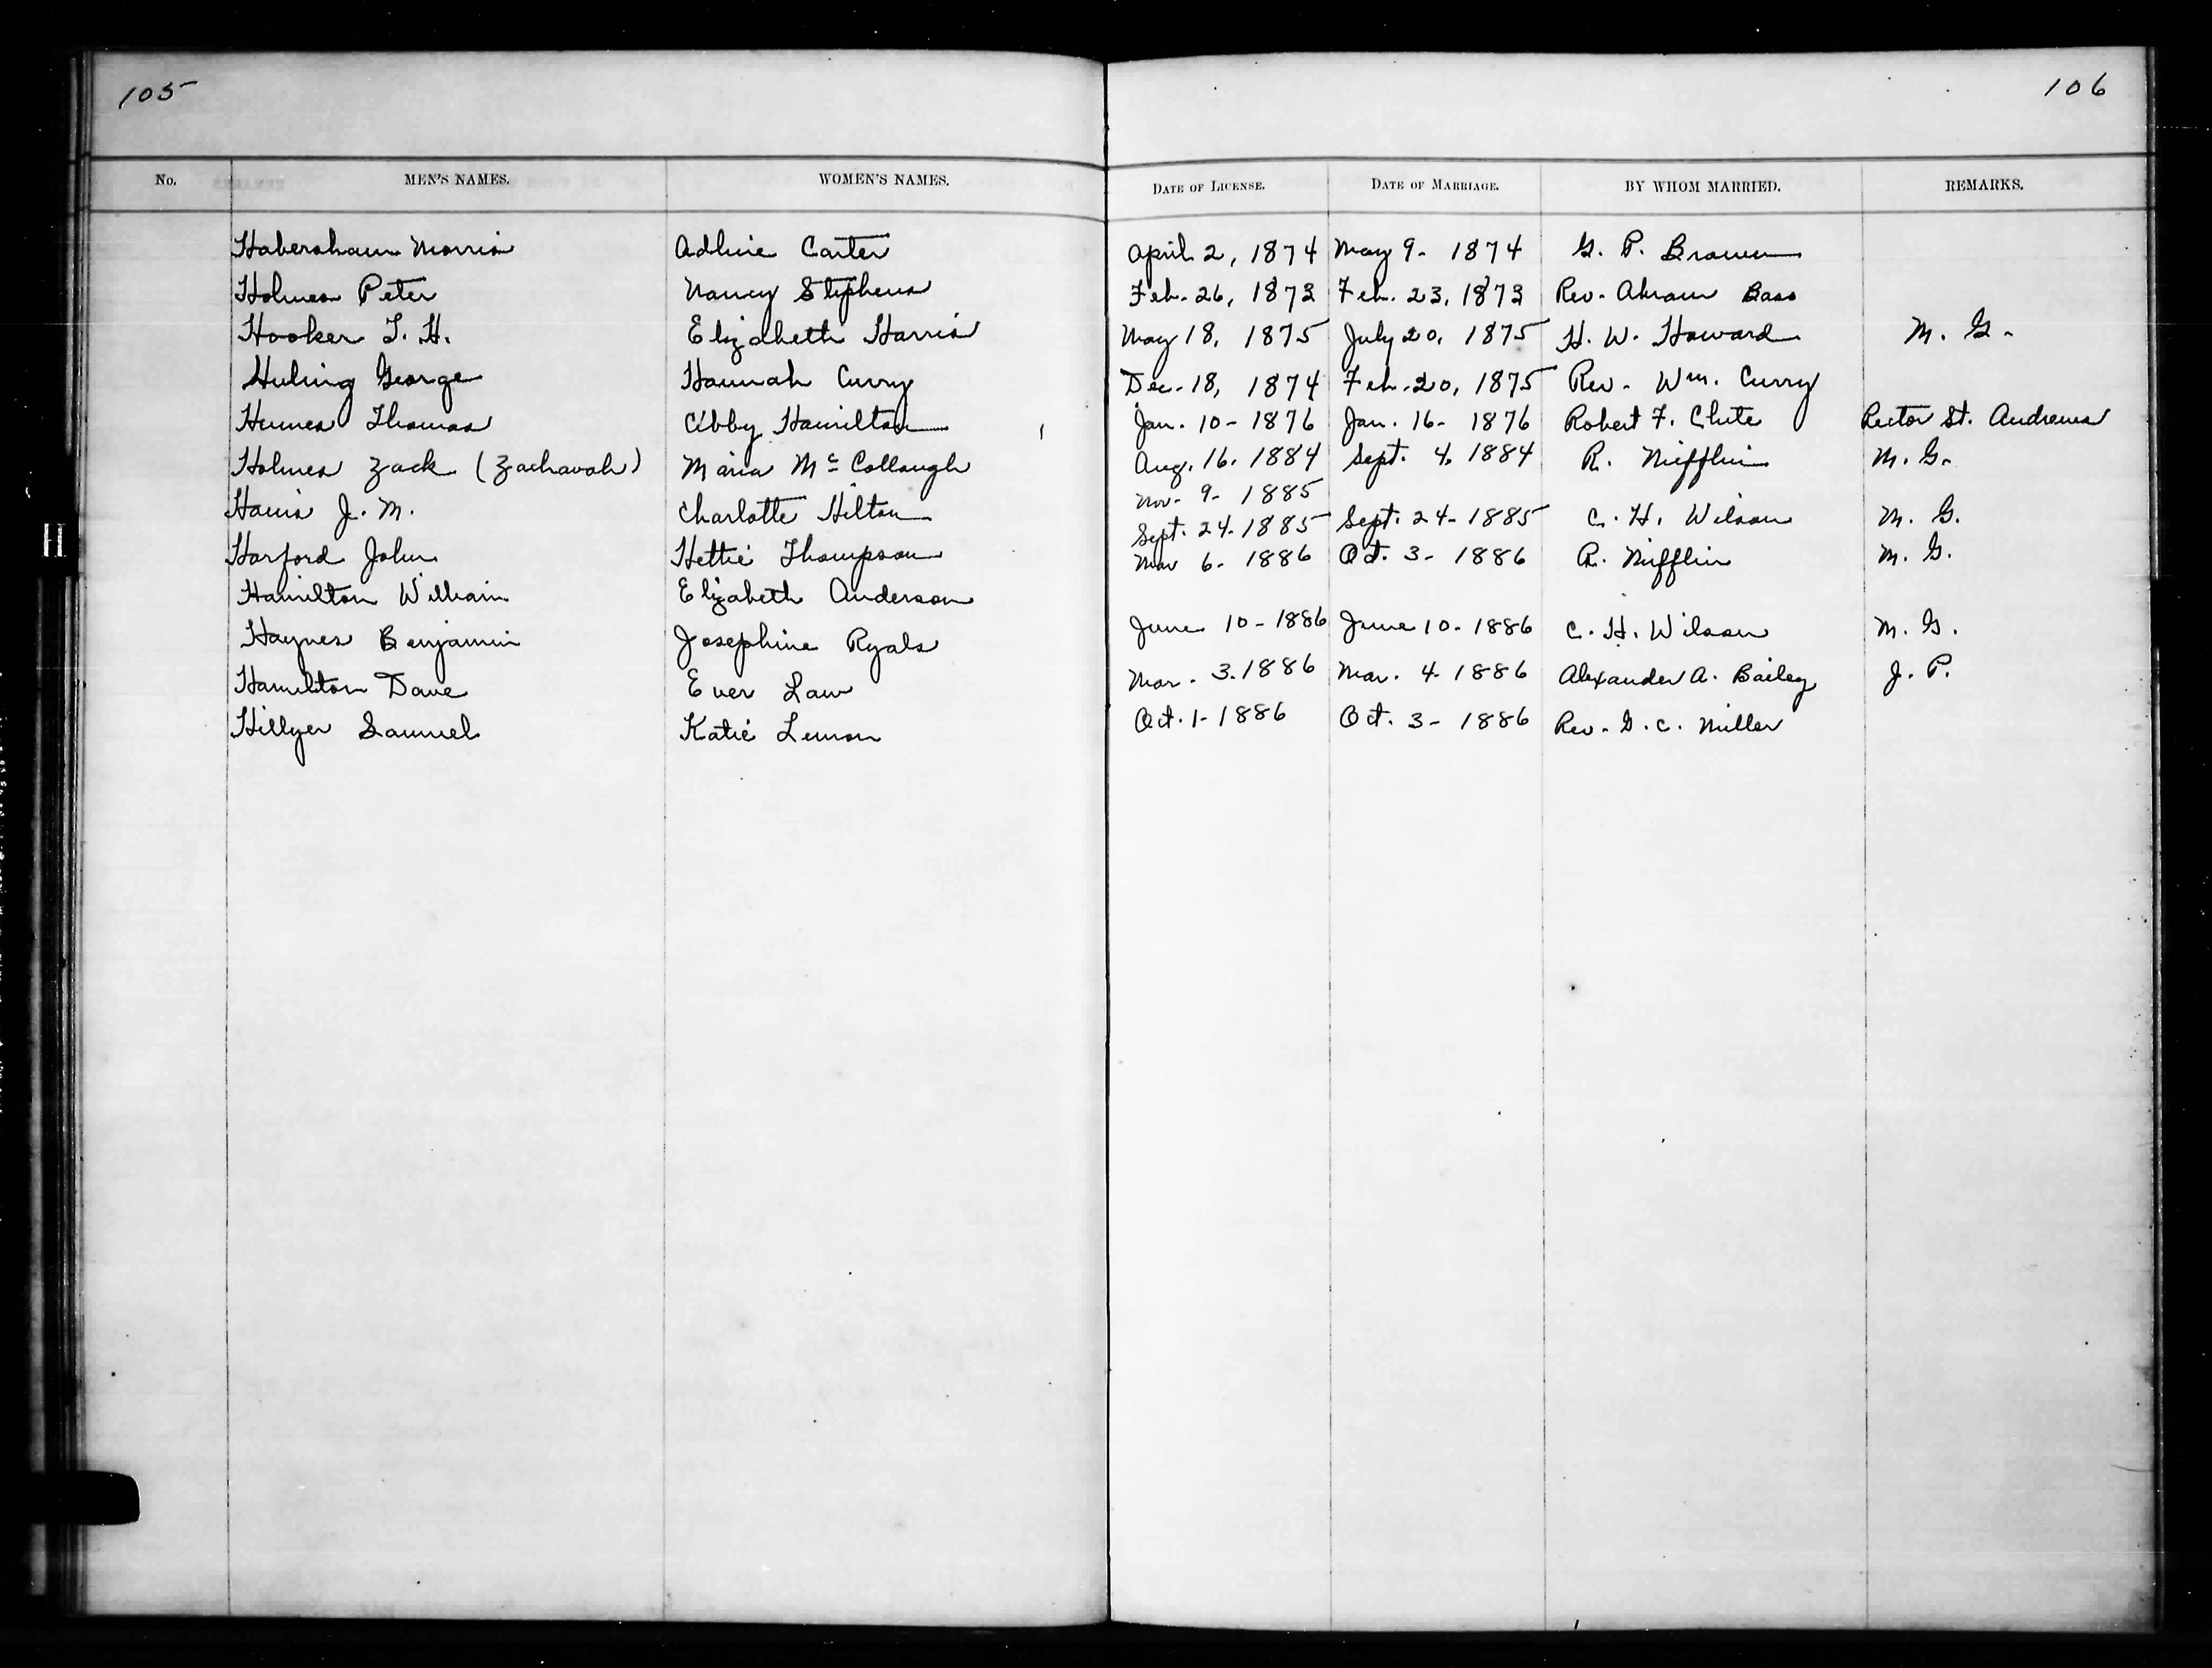 105
106
No. MEN'S NAMES. WOMEN'S NAMES. DATE OF LICENSE. DATE OF MARRIAGE. BY WHOM MARRIED. REMARKS.
Habersham Morris Adline Carter April 2, 1874 May 9- 1874 G. P. Brown
Holmes Peter Nancy Stephens Feb. 26, 1873 Feb. 23, 1873 Rev. Abram Bass
Hooker T. H. Elizabeth Harris May 18, 1875 July 20, 1875 H. W. Howard M. G.
Huling George Hannah Curry Dec. 18, 1874 Feb. 20, 1875 Rev. Wm. Curry
Humes Thomas Cibby Hamilton Jan. 10- 1876 Jan. 16- 1876 Robert F. Clute Rector St. Andrews
Holmes Zack (Zachavah) Maria McCollough Aug. 16. 1884 Sept. 4. 1884 R. Mifflin M. G.
Nov- 9- 1885
Harris J. M. Charlotte Hilton Sept. 24- 1885 Sept. 24- 1885 C. H. Wilson M. G.
Harford John Hettie Thompson Mar 6- 1886 Oct. 3- 1886 R. Mifflin M. G.
Hamilton William Elizabeth Anderson
Haynes Benjamin Josephine Ryals June 10- 1886 June 10- 1886 C. H. Wilson M. G.
Hamilton Dave Ever Law Mar. 3. 1886 Mar. 4. 1886 Alexander A. Bailey J. P.
Hillyer Samuel Katie Lemon Oct. 1- 1886 Oct. 3- 1886 Rev. G. C. Miller
H